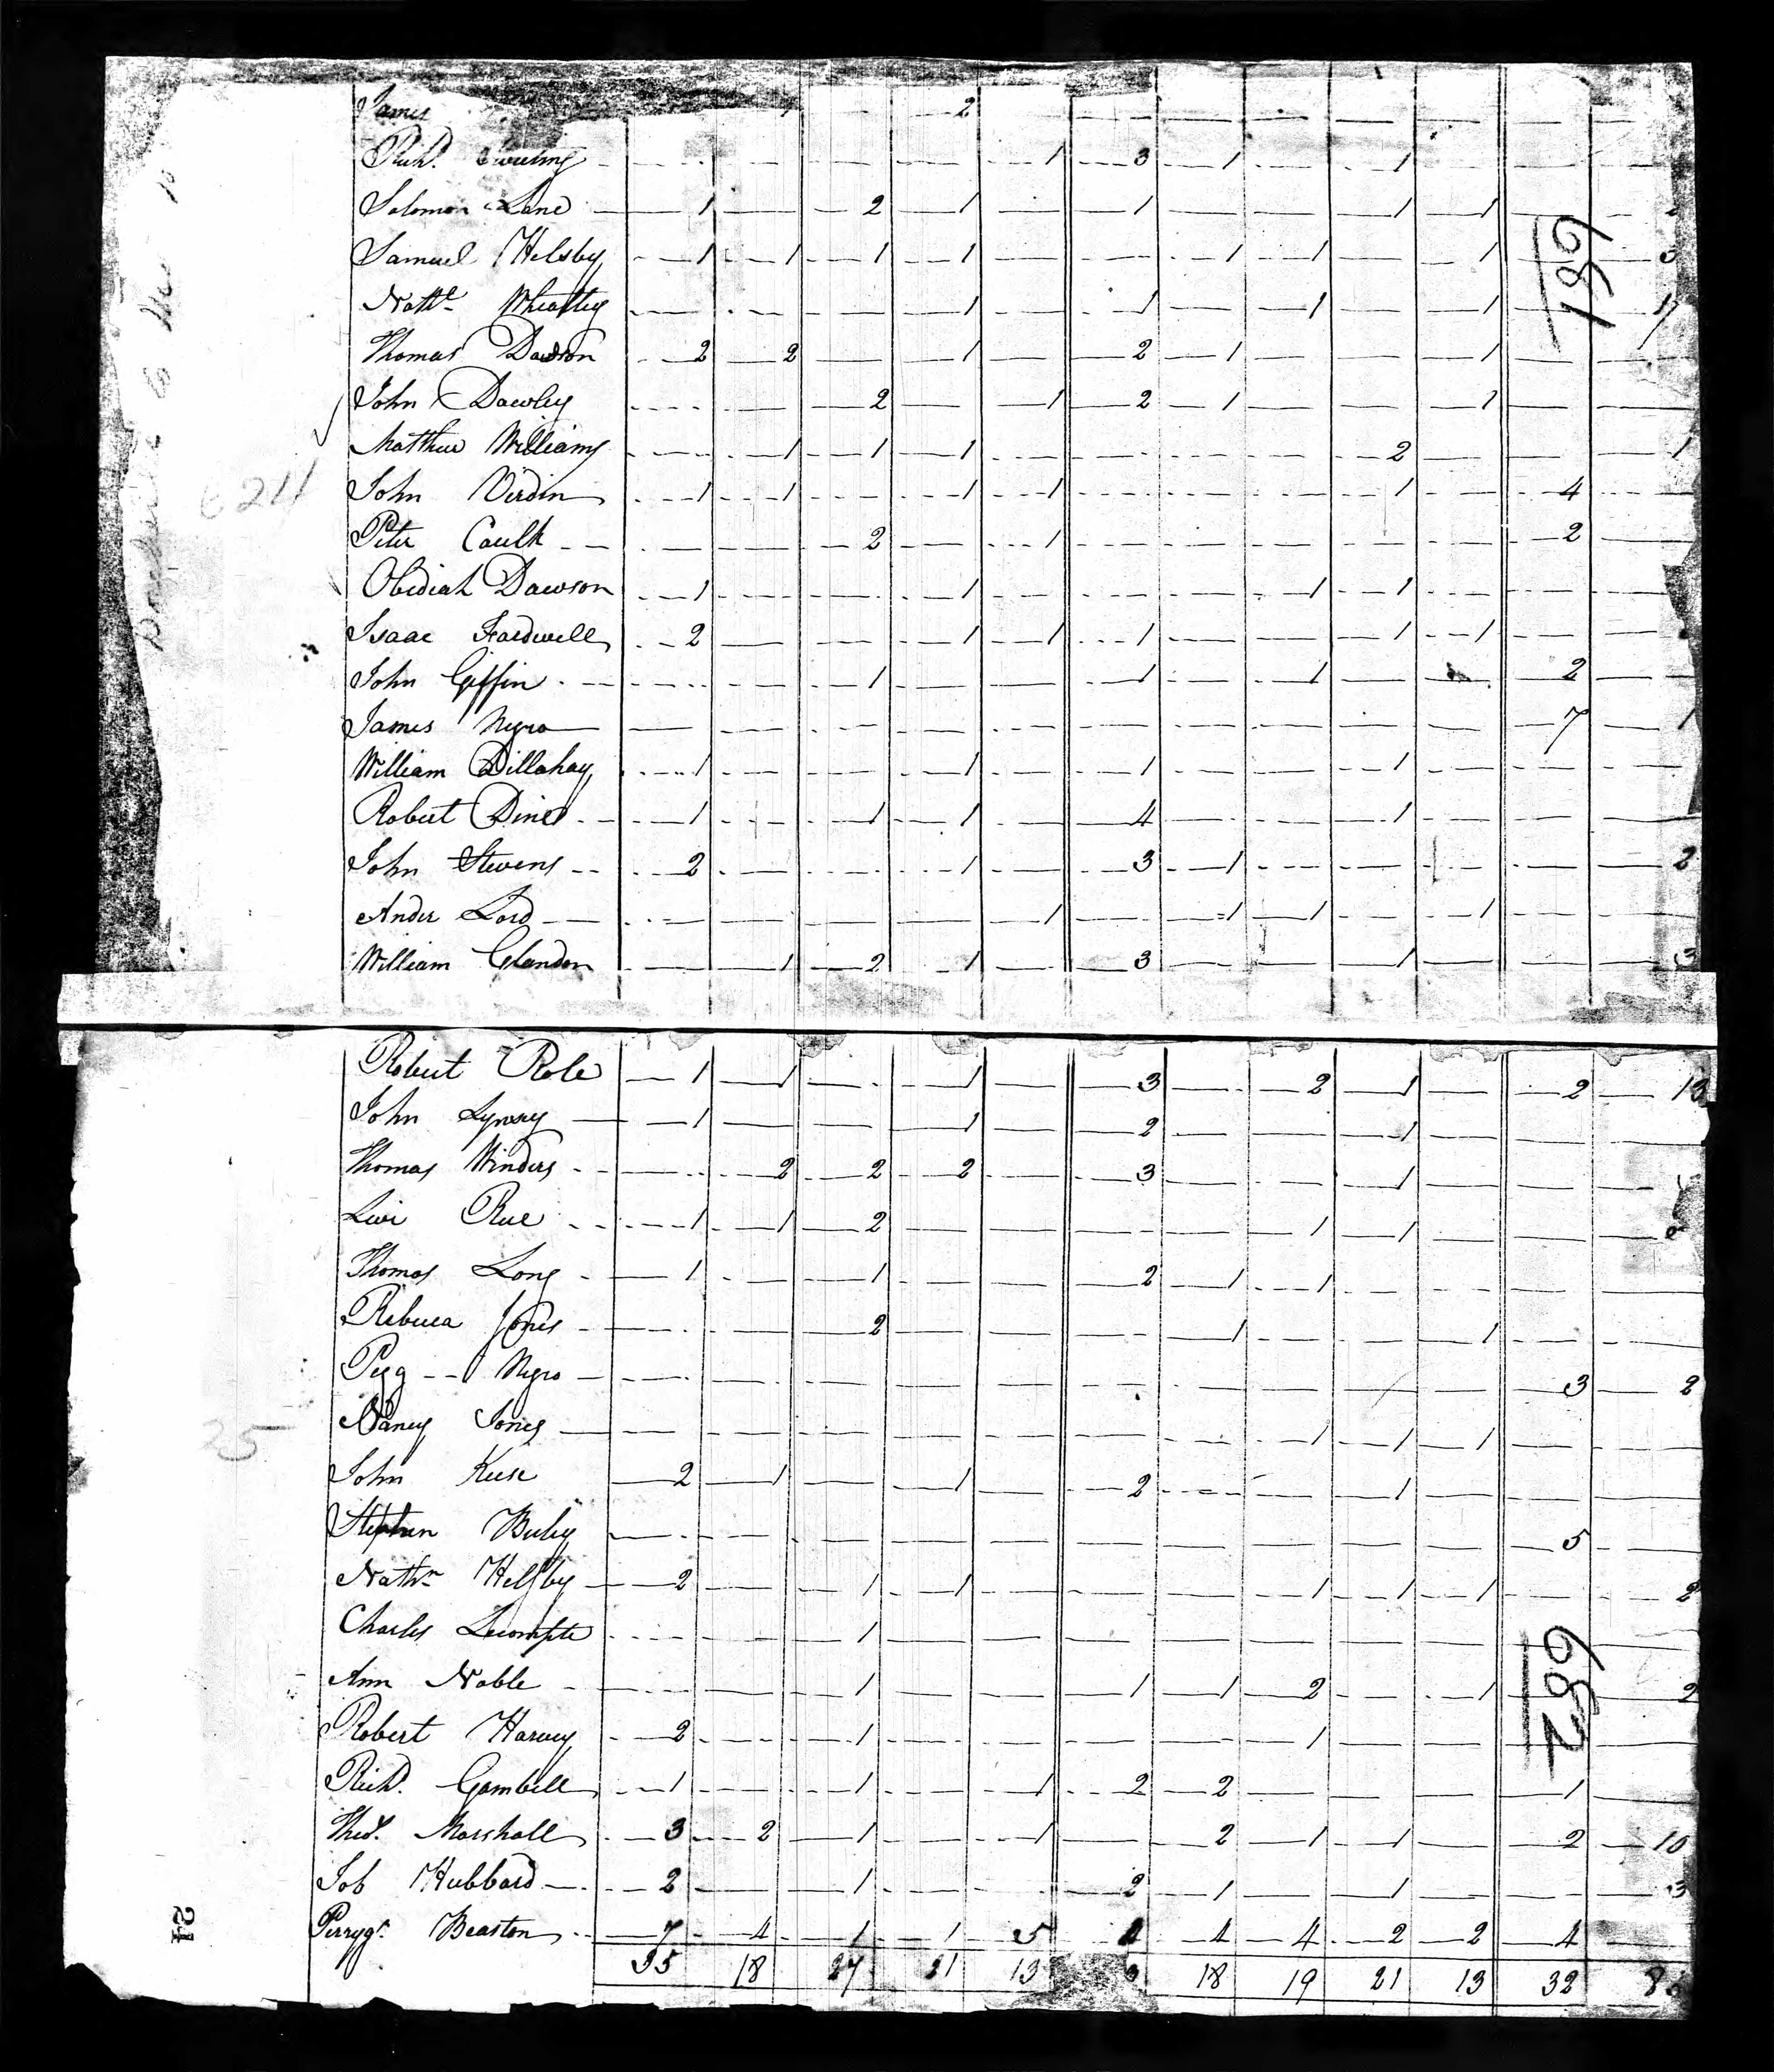 James 2
Richd. 1 3 1 1
Solomon Lane 1 2 1 1 1 1
Samuel Helsby 1 1 1 1 1 1 1
681
Nathl Wheatley 1 1 1 1
Thomas Dawson 2 2 1 2 1 1
John Dawley 2 1 2 1 1
Matthew Williams 1 1 1 2 1
John Virdin 1 1 1 1 1 4
Peter Caulk 2 1 2
Obediah Dawson 1 1 1 1
Isaac 2 1 1 1 1 1
John Giffin 1 1 1 2
James Negro 7 1
William Dillahay 1 1 1 1
Robert Dines 1 1 1 4 1
John Stevens 2 1 3 1 2
Ander Lord 1 1 1 1
William Glandon 1 2 1 3 1 3
Robert Role 1 1 1 3 2 1 2 13
John Lynsey 1 1 2 1
Thomas Winders 2 2 2 3 1
Livi Rue 1 1 2 1 1
Thomas Long 1 1 2 1 1
Rebecca Jones 2 1 1
Pegg Negro 3 2
Nancy Jones 1 1 1
25
John Keese 2 1 1 2 1
Stephen 5
Nathn Helsby 2 1 1 1 1 1 2
Charles Lecompte 1
682
Ann Noble 1 1 1 2 1 2
Robert Harvey 2 1 1
Richd. Gambell 1 1 1 2 2 1
Thos. Marshall 3 2 1 1 2 1 1 2 10
Job Hubbard 2 1 2 1 1 3
24
Perrygr. Beaston 7 4 1 1 5 4 4 2 2 4
35 18 27 21 13 18 19 21 13 32